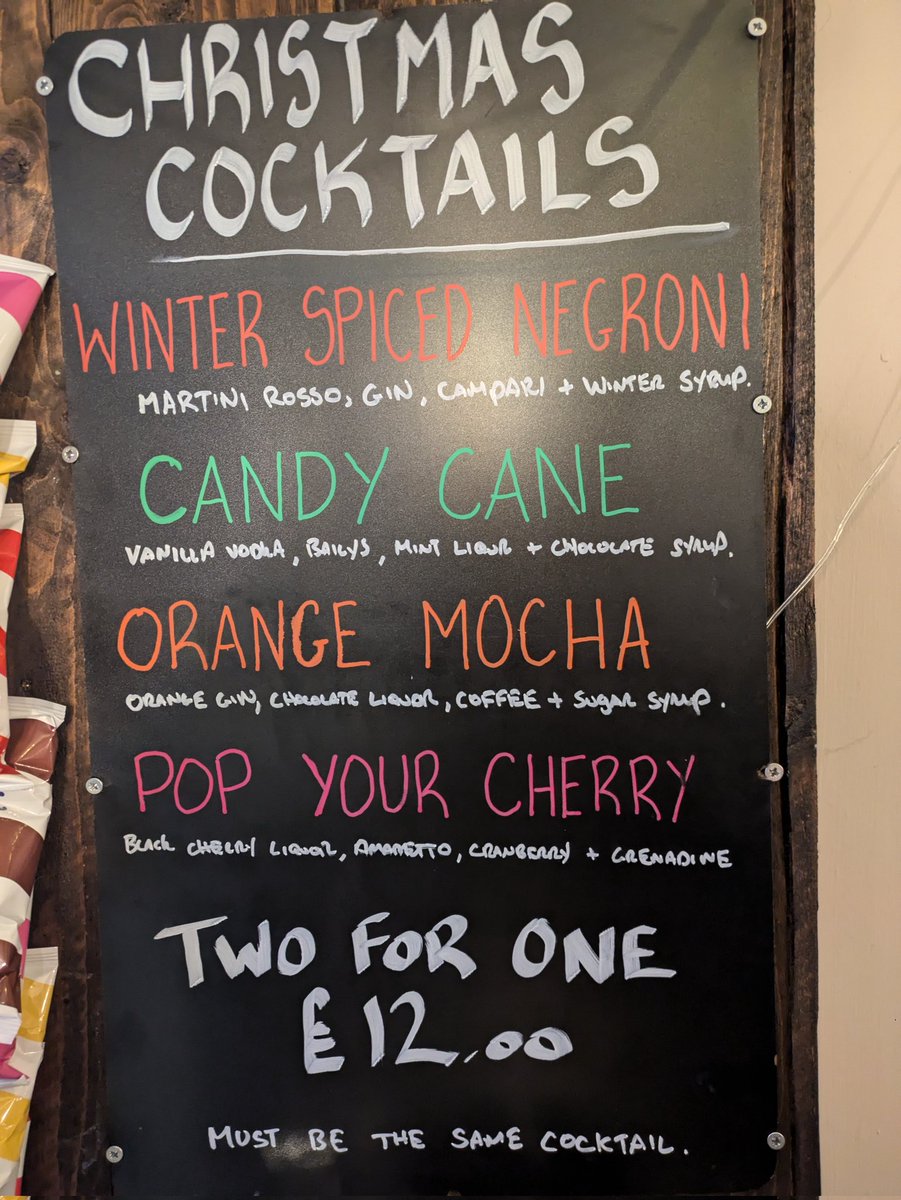 CHRISTMAS
COCKTAILS
WINTER SPICED NEGRONI
MARTINI ROSSO, GIN, CAMPARI + WINTER SYRUP.
CANDY CANE
VANILLA VODKA, BAILYS, MINT LIQUR + CHOCOLATE SYRUP.
ORANGE MOCHA
ORANGE GIN, CHOCOLATE LIQUOR, COFFEE + SUGAR SYRUP.
POP YOUR CHERRY
BLACK CHERRY LIQUOR, AMARETTO, CRANBERRY + GRENADINE
TWO FOR ONE
£12.00
MUST BE THE SAME COCKTAIL.